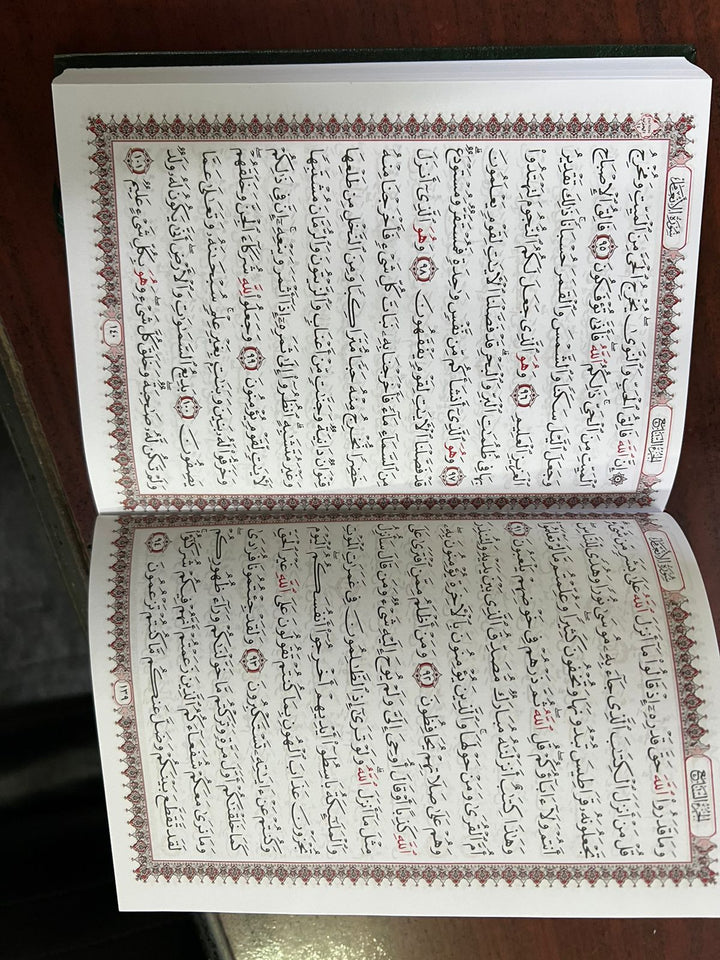 سُورَةُ الأَنْعَامِ
الجُزْءُ السَّابِعُ
وَمَا قَدَرُوا۟ ٱللَّهَ حَقَّ قَدْرِهِۦٓ إِذْ قَالُوا۟ مَآ أَنزَلَ ٱللَّهُ عَلَىٰ بَشَرٍ مِّن شَىْءٍ ۗ
قُلْ مَنْ أَنزَلَ ٱلْكِتَٰبَ ٱلَّذِى جَآءَ بِهِۦ مُوسَىٰ نُورًا وَهُدًى لِّلنَّاسِ ۖ
تَجْعَلُونَهُۥ قَرَاطِيسَ تُبْدُونَهَا وَتُخْفُونَ كَثِيرًا ۖ وَعُلِّمْتُم مَّا لَمْ تَعْلَمُوٓا۟
أَنتُمْ وَلَآ ءَابَآؤُكُمْ ۖ قُلِ ٱللَّهُ ۖ ثُمَّ ذَرْهُمْ فِى خَوْضِهِمْ يَلْعَبُونَ ٩١
وَهَٰذَا كِتَٰبٌ أَنزَلْنَٰهُ مُبَارَكٌ مُّصَدِّقُ ٱلَّذِى بَيْنَ يَدَيْهِ وَلِتُنذِرَ
أُمَّ ٱلْقُرَىٰ وَمَنْ حَوْلَهَا ۚ وَٱلَّذِينَ يُؤْمِنُونَ بِٱلْءَاخِرَةِ يُؤْمِنُونَ بِهِۦ ۖ
وَهُمْ عَلَىٰ صَلَاتِهِمْ يُحَافِظُونَ ٩٢ وَمَنْ أَظْلَمُ مِمَّنِ ٱفْتَرَىٰ عَلَى
ٱللَّهِ كَذِبًا أَوْ قَالَ أُوحِىَ إِلَىَّ وَلَمْ يُوحَ إِلَيْهِ شَىْءٌ وَمَن قَالَ سَأُنزِلُ
مِثْلَ مَآ أَنزَلَ ٱللَّهُ ۗ وَلَوْ تَرَىٰٓ إِذِ ٱلظَّٰلِمُونَ فِى غَمَرَٰتِ ٱلْمَوْتِ
وَٱلْمَلَٰٓئِكَةُ بَاسِطُوٓا۟ أَيْدِيهِمْ أَخْرِجُوٓا۟ أَنفُسَكُمُ ۖ ٱلْيَوْمَ
تُجْزَوْنَ عَذَابَ ٱلْهُونِ بِمَا كُنتُمْ تَقُولُونَ عَلَى ٱللَّهِ غَيْرَ ٱلْحَقِّ
وَكُنتُمْ عَنْ ءَايَٰتِهِۦ تَسْتَكْبِرُونَ ٩٣ وَلَقَدْ جِئْتُمُونَا فُرَٰدَىٰ
كَمَا خَلَقْنَٰكُمْ أَوَّلَ مَرَّةٍ وَتَرَكْتُم مَّا خَوَّلْنَٰكُمْ وَرَآءَ ظُهُورِكُمْ ۖ
وَمَا نَرَىٰ مَعَكُمْ شُفَعَآءَكُمُ ٱلَّذِينَ زَعَمْتُمْ أَنَّهُمْ فِيكُمْ شُرَكَٰٓؤُا۟ ۚ
لَقَد تَّقَطَّعَ بَيْنَكُمْ وَضَلَّ عَنكُم مَّا كُنتُمْ تَزْعُمُونَ ٩٤
١٣٩
سُورَةُ الأَنْعَامِ
الجُزْءُ السَّابِعُ
۞ إِنَّ ٱللَّهَ فَالِقُ ٱلْحَبِّ وَٱلنَّوَىٰ ۖ يُخْرِجُ ٱلْحَىَّ مِنَ ٱلْمَيِّتِ وَمُخْرِجُ
ٱلْمَيِّتِ مِنَ ٱلْحَىِّ ۚ ذَٰلِكُمُ ٱللَّهُ ۖ فَأَنَّىٰ تُؤْفَكُونَ ٩٥ فَالِقُ ٱلْإِصْبَاحِ
وَجَعَلَ ٱلَّيْلَ سَكَنًا وَٱلشَّمْسَ وَٱلْقَمَرَ حُسْبَانًا ۚ ذَٰلِكَ تَقْدِيرُ
ٱلْعَزِيزِ ٱلْعَلِيمِ ٩٦ وَهُوَ ٱلَّذِى جَعَلَ لَكُمُ ٱلنُّجُومَ لِتَهْتَدُوا۟
بِهَا فِى ظُلُمَٰتِ ٱلْبَرِّ وَٱلْبَحْرِ ۗ قَدْ فَصَّلْنَا ٱلْءَايَٰتِ لِقَوْمٍ يَعْلَمُونَ
٩٧ وَهُوَ ٱلَّذِىٓ أَنشَأَكُم مِّن نَّفْسٍ وَٰحِدَةٍ فَمُسْتَقَرٌّ وَمُسْتَوْدَعٌ ۗ
قَدْ فَصَّلْنَا ٱلْءَايَٰتِ لِقَوْمٍ يَفْقَهُونَ ٩٨ وَهُوَ ٱلَّذِىٓ أَنزَلَ
مِنَ ٱلسَّمَآءِ مَآءً فَأَخْرَجْنَا بِهِۦ نَبَاتَ كُلِّ شَىْءٍ فَأَخْرَجْنَا مِنْهُ
خَضِرًا نُّخْرِجُ مِنْهُ حَبًّا مُّتَرَاكِبًا وَمِنَ ٱلنَّخْلِ مِن طَلْعِهَا
قِنْوَانٌ دَانِيَةٌ وَجَنَّٰتٍ مِّنْ أَعْنَابٍ وَٱلزَّيْتُونَ وَٱلرُّمَّانَ مُشْتَبِهًا
وَغَيْرَ مُتَشَٰبِهٍ ۗ ٱنظُرُوٓا۟ إِلَىٰ ثَمَرِهِۦٓ إِذَآ أَثْمَرَ وَيَنْعِهِۦٓ ۚ إِنَّ فِى ذَٰلِكُمْ
لَءَايَٰتٍ لِّقَوْمٍ يُؤْمِنُونَ ٩٩ وَجَعَلُوا۟ لِلَّهِ شُرَكَآءَ ٱلْجِنَّ وَخَلَقَهُمْ ۖ
وَخَرَقُوا۟ لَهُۥ بَنِينَ وَبَنَٰتٍۭ بِغَيْرِ عِلْمٍ ۚ سُبْحَٰنَهُۥ وَتَعَٰلَىٰ عَمَّا
يَصِفُونَ ١٠٠ بَدِيعُ ٱلسَّمَٰوَٰتِ وَٱلْأَرْضِ ۖ أَنَّىٰ يَكُونُ لَهُۥ وَلَدٌ
وَلَمْ تَكُن لَّهُۥ صَٰحِبَةٌ ۖ وَخَلَقَ كُلَّ شَىْءٍ ۖ وَهُوَ بِكُلِّ شَىْءٍ عَلِيمٌ ١٠١
١٤٠